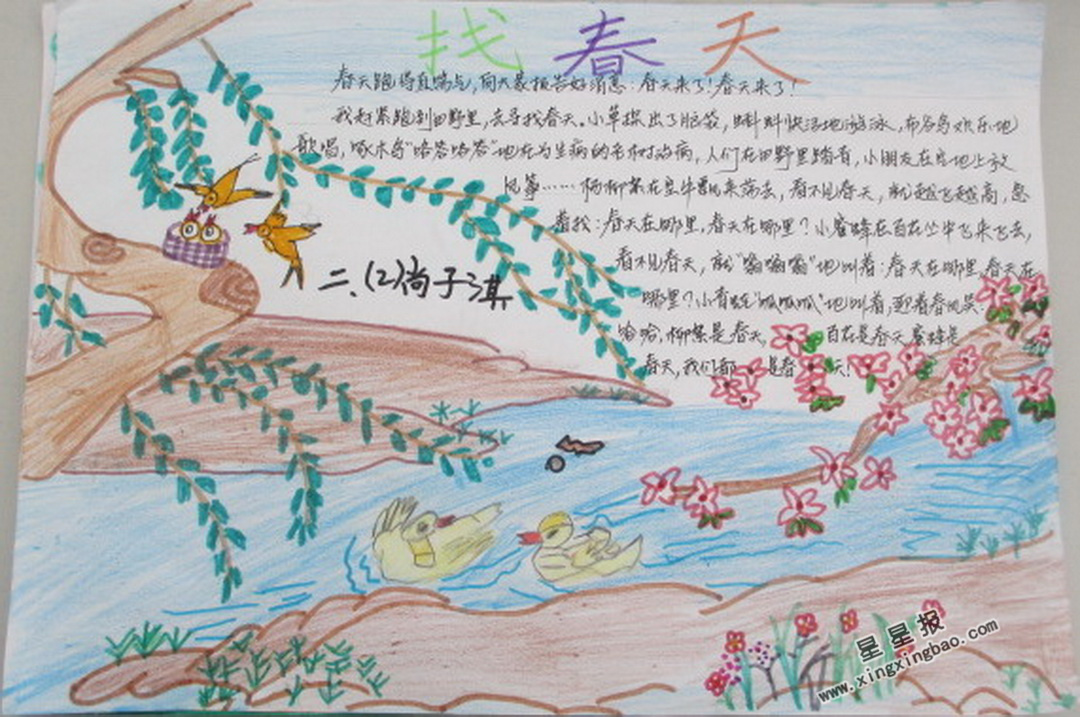 找春天
春天跑得直喘气，向大家报告好消息：春天来了！春天来了！
我赶紧跑到田野里，去寻找春天。小草探出了脑袋，蝌蚪快活地游泳，布谷鸟欢乐地
歌唱，啄木鸟“咯答咯答”地在为生病的老树治病，人们在田野里踏青，小朋友在空地上放
风筝……杨柳絮在空中飘来荡去，看不见春天，就越飞越高，急
着找：春天在哪里，春天在哪里？小蜜蜂在百花丛中飞来飞去，
看不见春天，就“嗡嗡嗡”地叫着：春天在哪里，春天在
哪里？小青蛙“呱呱呱”地叫着，迎着春风笑：
哈哈，柳絮是春天，百花是春天蜜蜂是
春天，我们都是春天！
二、(2)尚子淇
星星报
www.xingxingbao.com